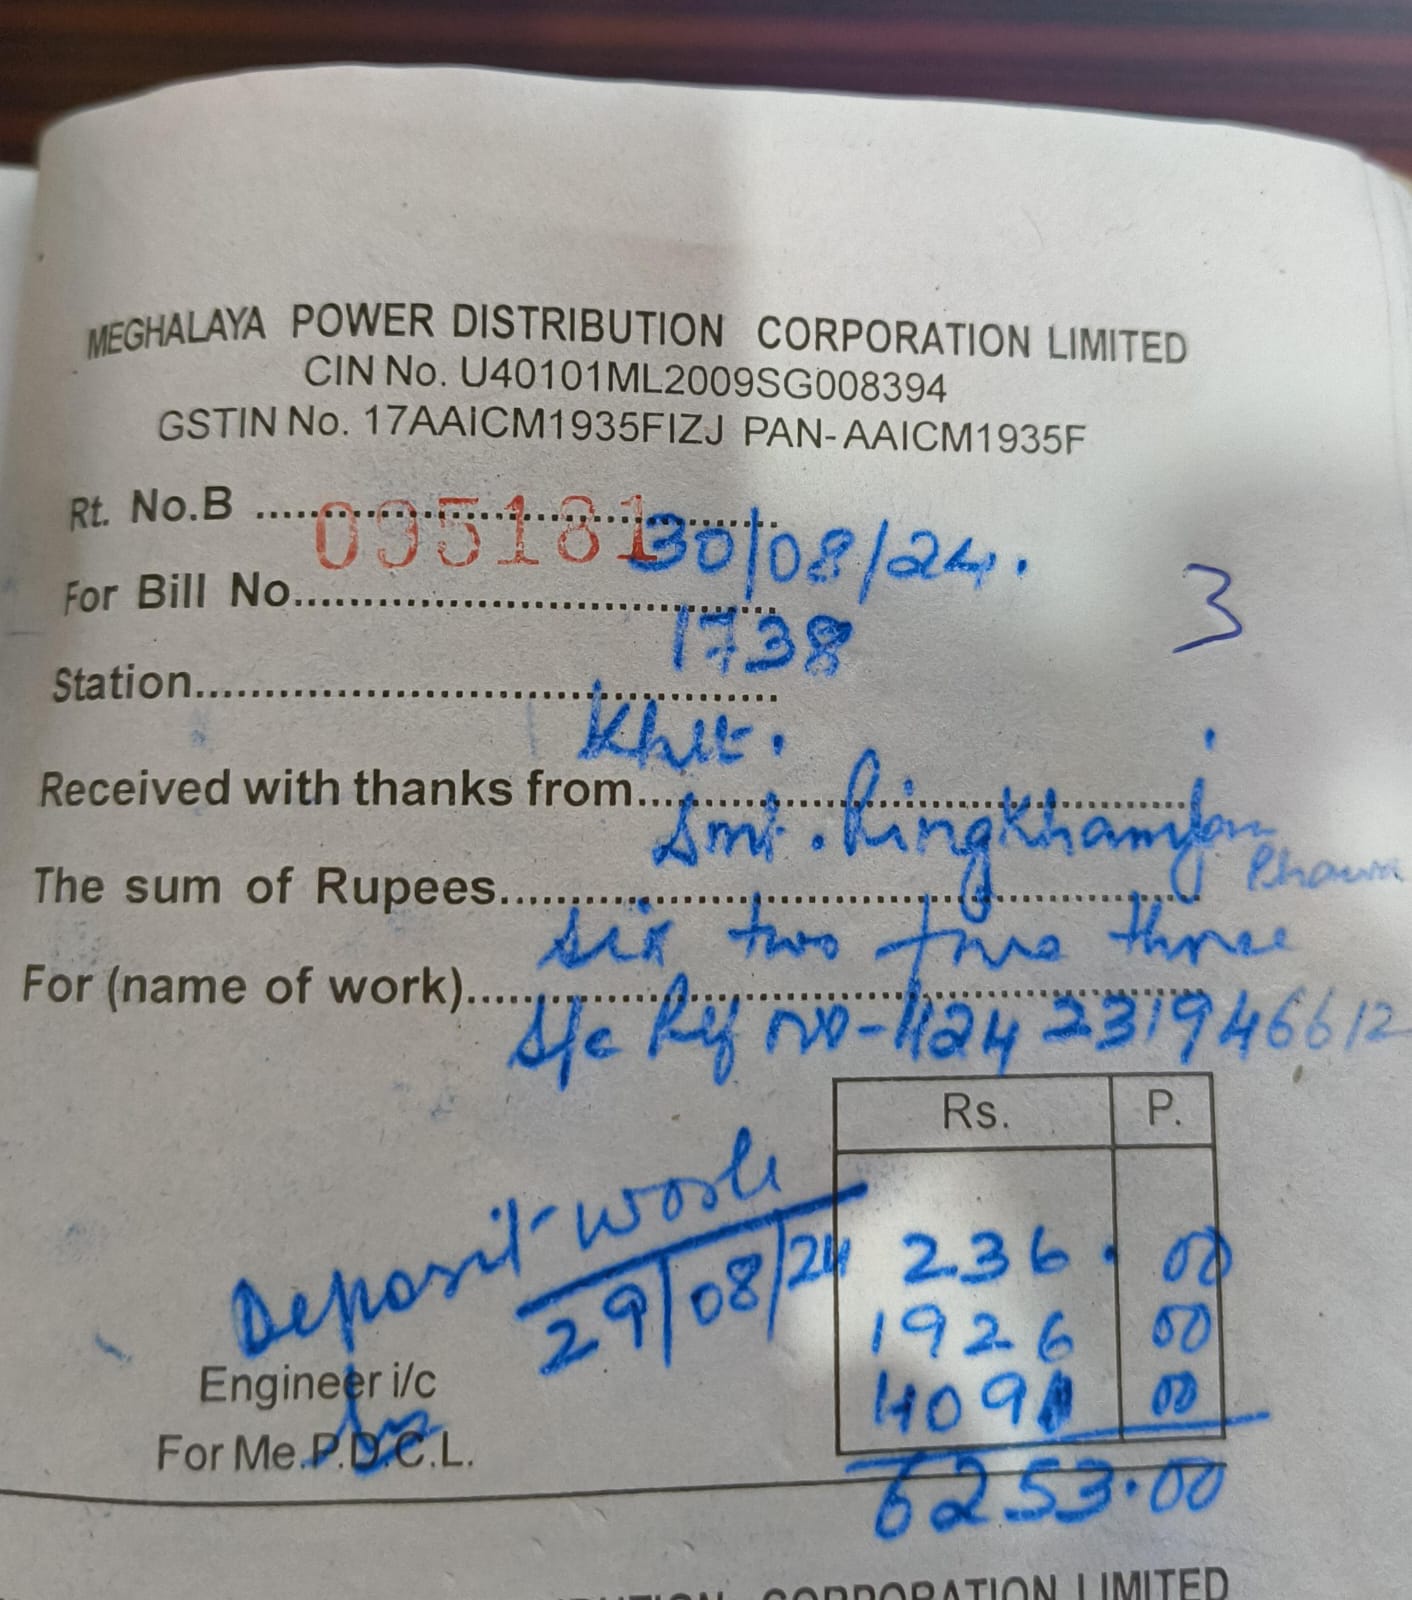 MEGHALAYA POWER DISTRIBUTION CORPORATION LIMITED
CIN No. U40101ML2009SG008394
GSTIN No. 17AAICM1935FIZJ PAN-AAICM1935F
Rt. No.B ........ 095181
30/08/24.
3
For Bill No........
1738
Station........
Khlt.
Received with thanks from........
Smt. Ringkhamjon
The sum of Rupees........
six two three
For (name of work)........
S/c Ref no-424231946612
Rs. P.
Deposit work
29/08/24
236. 00
1926 00
4091 00
Engineer i/c
For Me.P.D.C.L.
6253.00
CORPORATION LIMITED